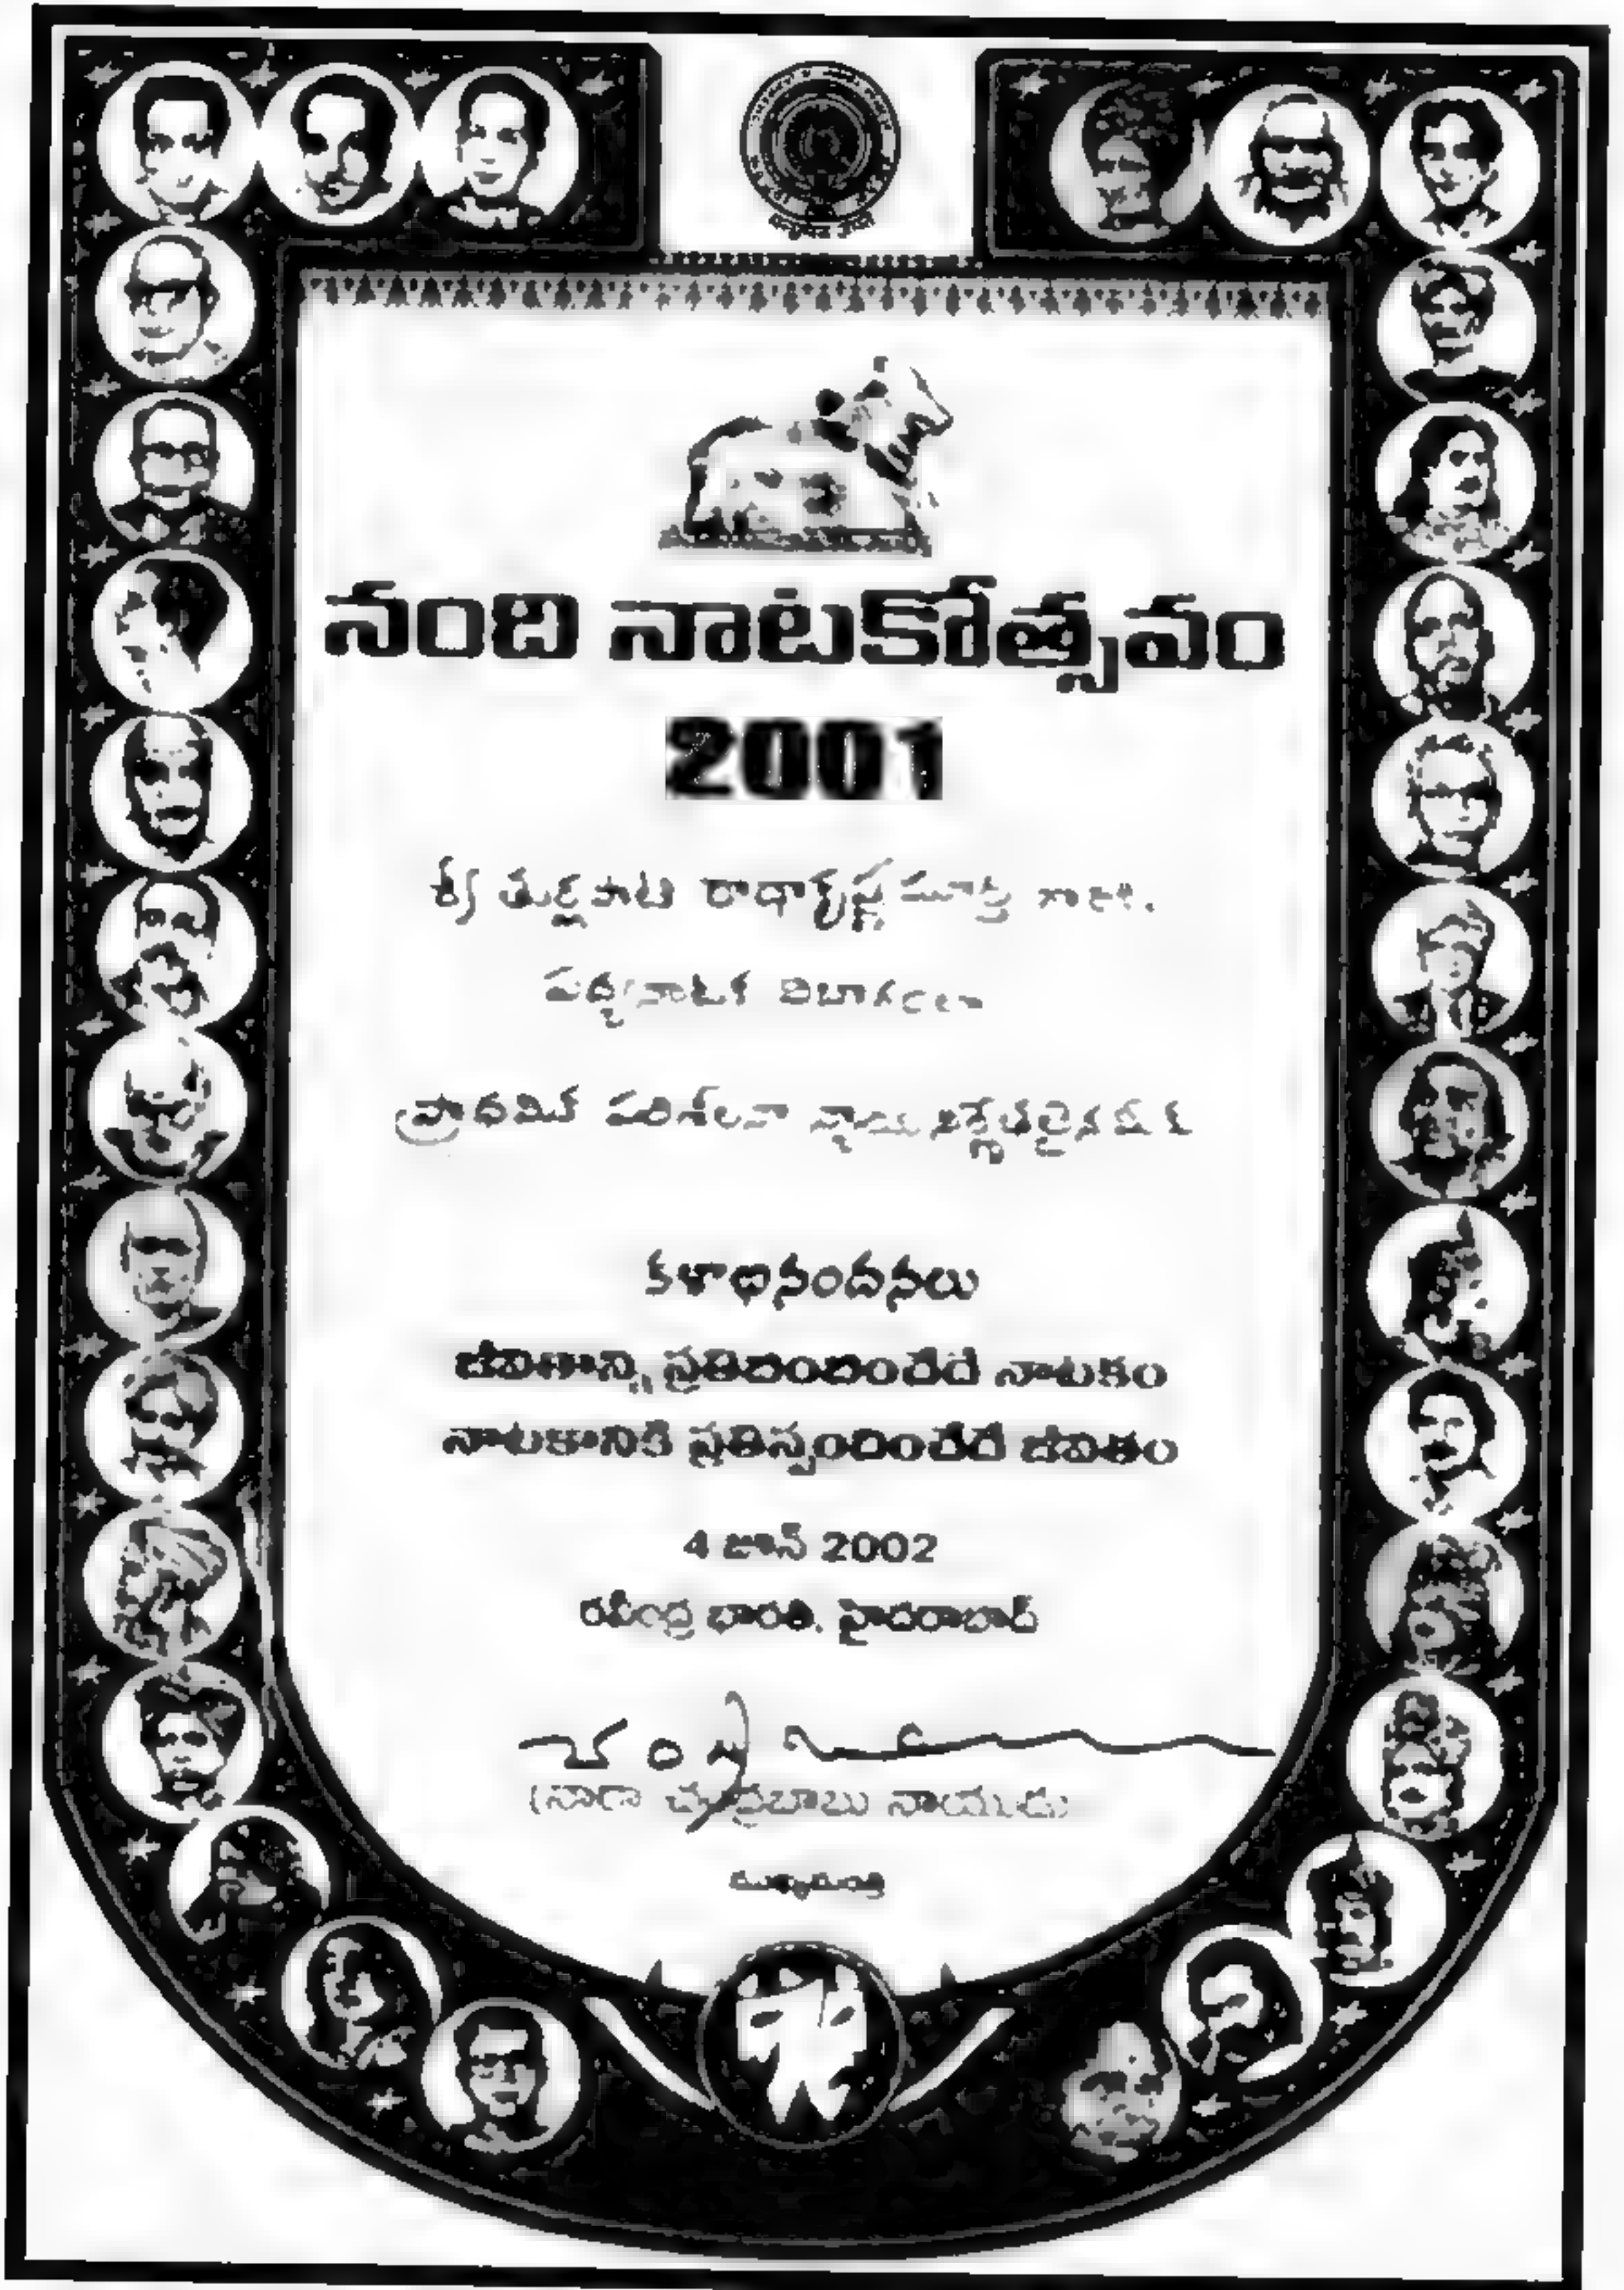 నంది నాటకోత్సవం
2001
శ్రీ తుర్లపాటి రాధాకృష్ణ మూర్తి గారికి.
పద్యనాటక విభాగంలో
ప్రాథమిక పరిశీలనా న్యాయ నిర్ణేతలైనమీకు
కళాభినందనలు
జీవితాన్ని ప్రతిబింబించేదే నాటకం
నాటకానికి ప్రతిస్పందించేదే జీవితం
4 జూన్ 2002
రవీంద్ర భారతి, హైదరాబాద్
(నారా చంద్రబాబు నాయుడు)
ముఖ్యమంత్రి